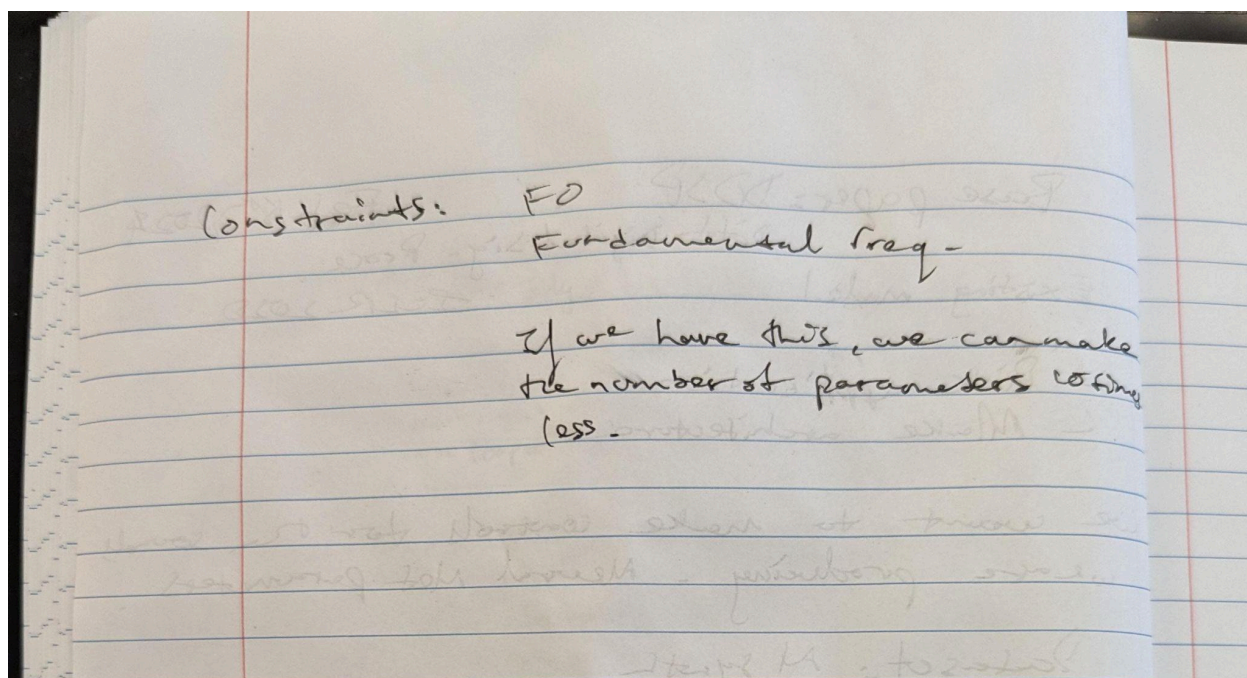 Constraints: F0
Fundamental freq-
If we have this, we can make
the number of parameters 10 times
less.